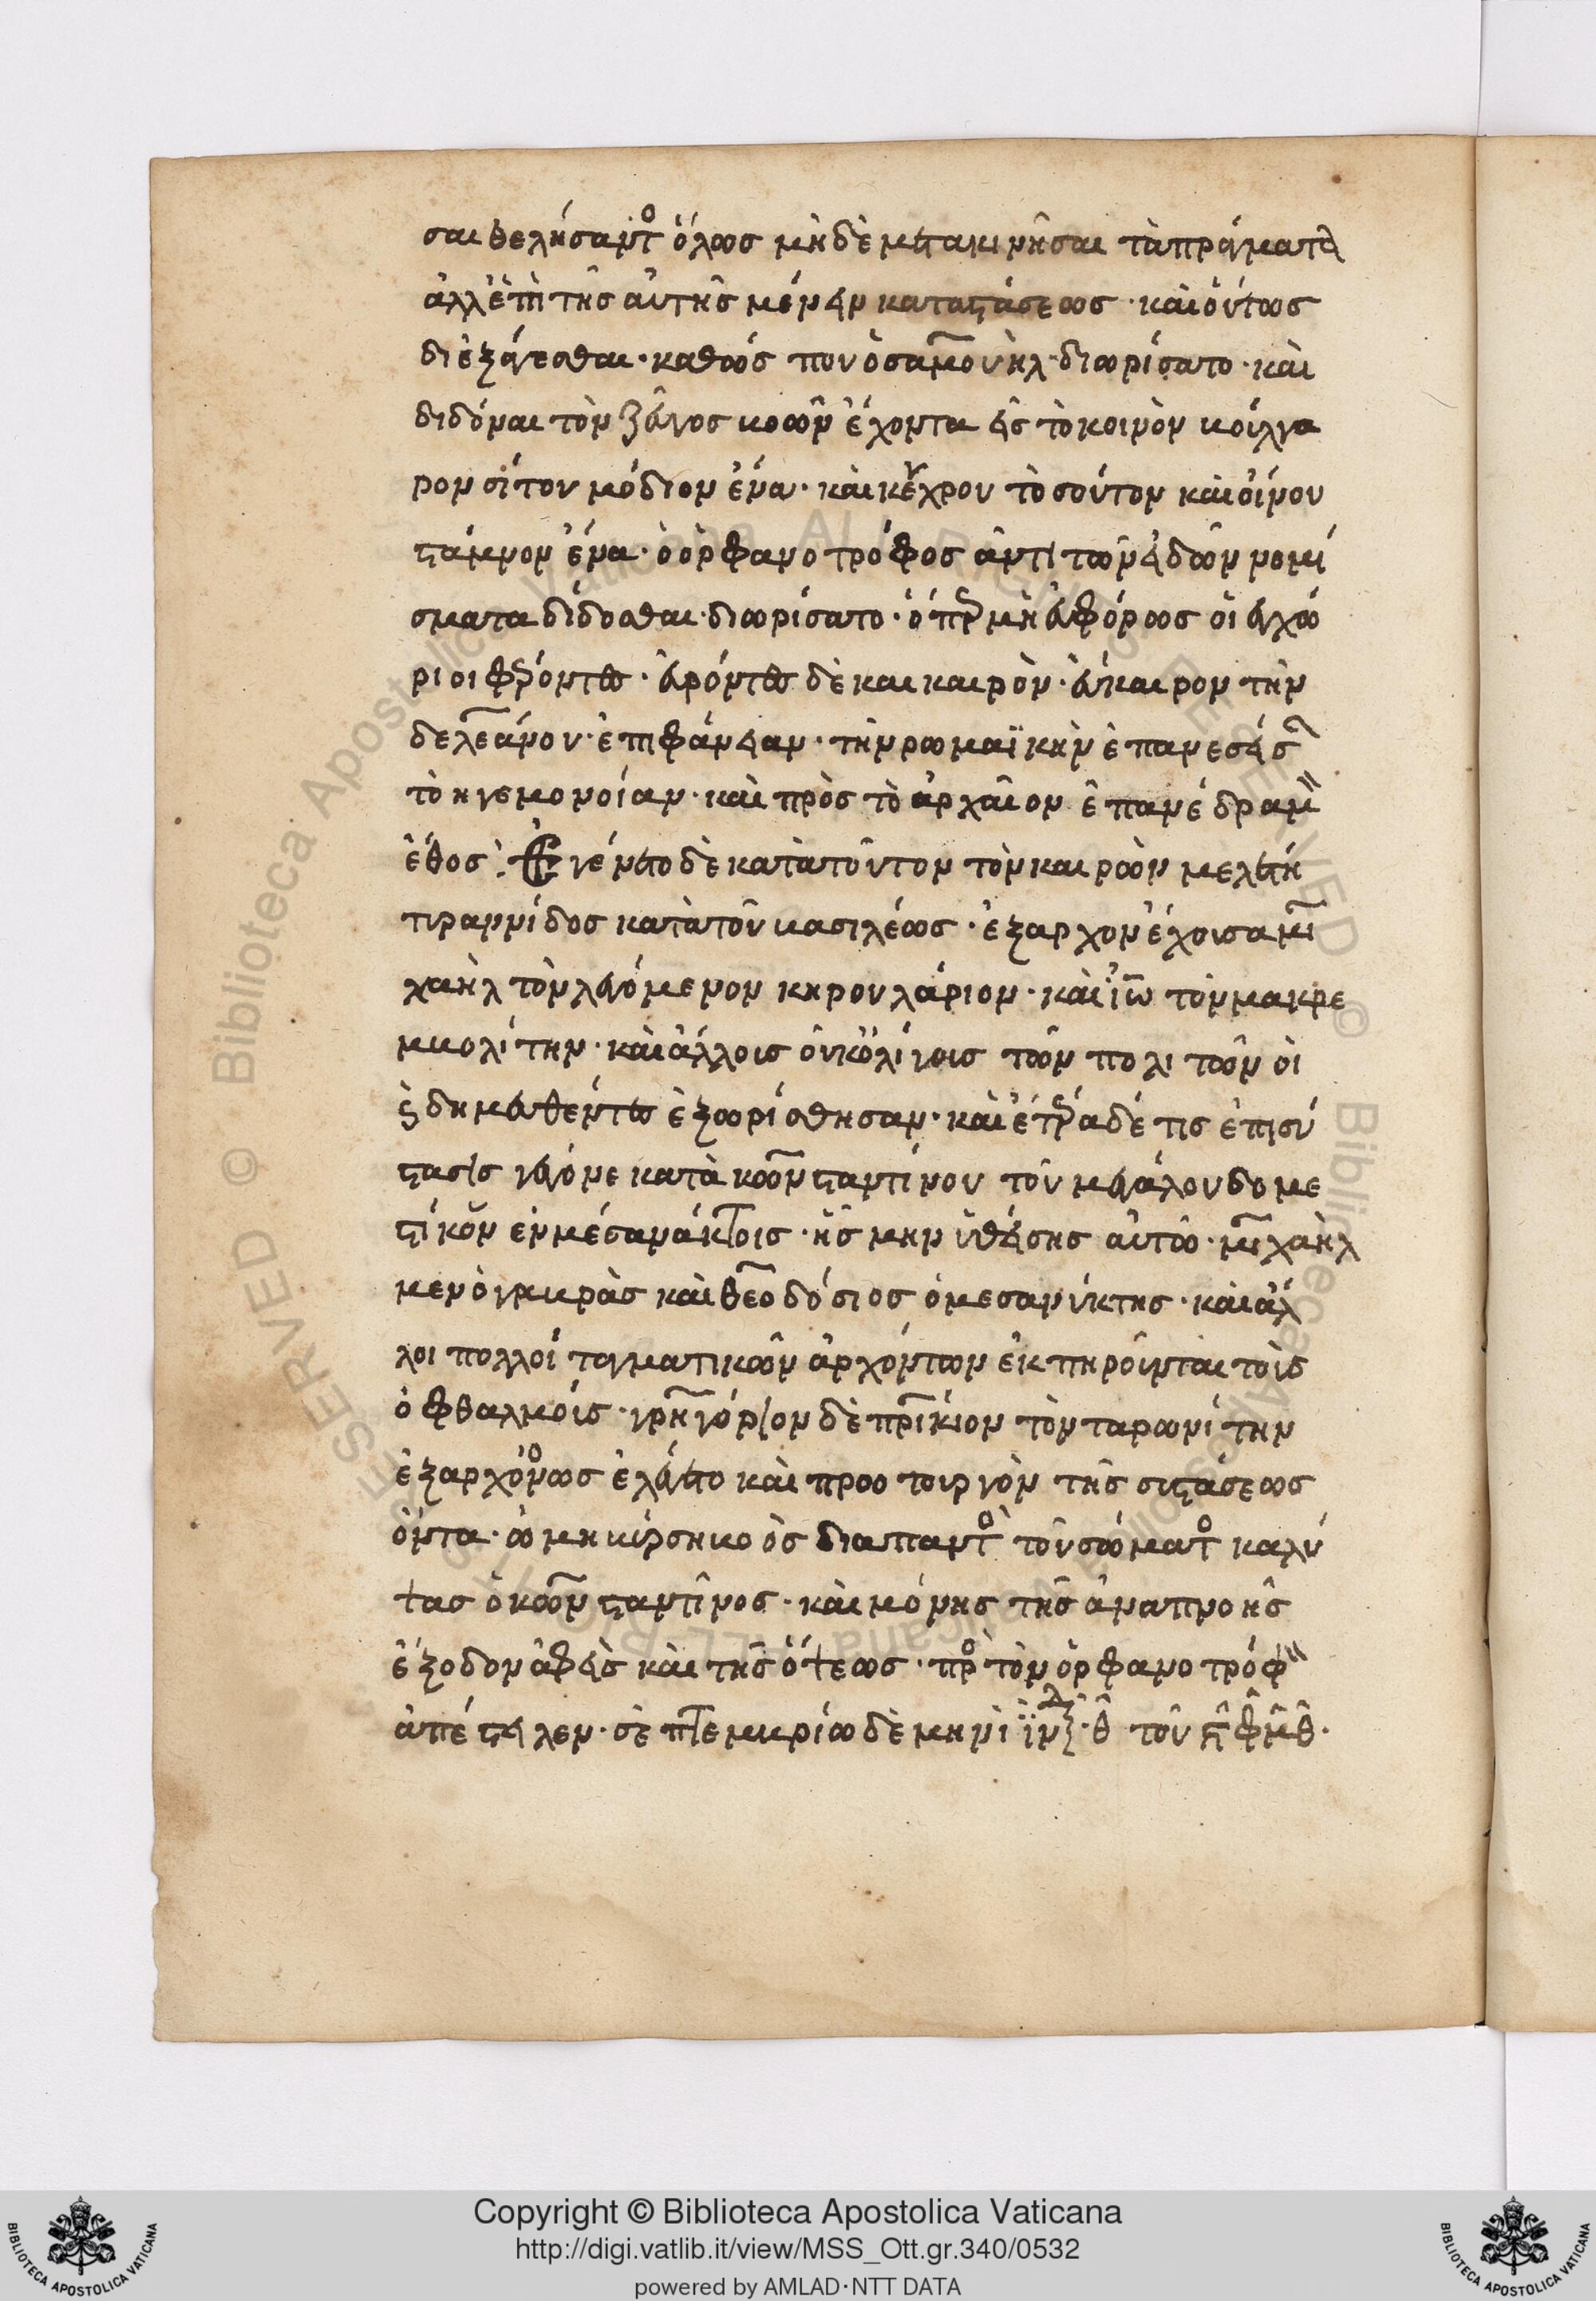 σαι θελήσαντο ὅλως μὴ δὲ μετακινῆσαι τὰ πράγματα
ἀλλ' ἐπὶ τῆς αὐτῆς μένειν καταστάσεως · καὶ οὕτως
διεξάγεσθαι · καθὼς που ὁ σαμουὴλ διωρίσατο · καὶ
διδόναι τὸν ζεῦγος βοῶν ἔχοντα εἰς τὸ κοινὸν βούλγα
ρον σίτου μόδιον ἕνα · καὶ κέγχρου τοσοῦτον καὶ οἴνου
στάμνον ἕνα · ὁ ὀρφανοτρόφος ἀντὶ τῶν εἰδῶν νομί
σματα δίδοσθαι διωρίσατο · ὅπερ μὴ εὐφόρως οἱ ἐγχώ
ριοι φέροντες · εὑρόντες δὲ και καιρὸν · εὔκαιρον τὴν
δελεάνου ἐπιφάνειαν · τὴν ρωμαϊκὴν ἐπανεσείσαν
το ηγεμονοίαν · καὶ πρὸς τὸ ἀρχαῖον ἐπανέδραμον
ἔθος · Ἐγένετο δὲ κατὰ τοῦτον τὸν καιρὼν μελέτη
τιραννίδος κατὰ τοῦ βασιλέως · ἐξαρχον ἔχοισα μι
χαὴλ τὸν λεγόμενον κηρουλάριον · καὶ ἰω τὸν μακρε
μβολίτην · καὶ ἄλλοις οὐκ ὀλίγοις τῶν πολιτῶν οἱ
ς δημευθέντες ἐξωρίσθησαν · καὶ ἑτέρα δέ τις ἐπισύ
στασις γέγονε κατὰ κωνσταντίνου τοῦ μεγάλου δομε
στίκου ἐν μέσανάκτοις · ἧς μηνυθείσης αὐτῶ · μιχαὴλ
μεν ὁ γαβρὰς καὶ θεοδόσιος ὁ μεσανύκτης · καὶ ἄλ
λοι πολλοί ταγματικῶν ἀρχόντων ἐκπηροῦνται τοὺς
ὀφθαλμούς · γρηγόριον δὲ πρίκιον τὸν ταρωνίτην
ἐξαρχόμενος ἐλέγετο καὶ προοτουργὸν τῆς συστάσεως
ὄντα · ὠμη βύρση βοὸς διαπαντὸ τοῦ σώματο καλύ
ψας ὁ κωνσταντῖνος · καὶ μόνης τῆς ἀναπνοῆς
ἔξοδον ἀφεὶς καὶ τῆς ὄψεως · προ τὸν ὀρφανοτρόφον
ἀπέστειλεν · σεπτεμβρίω δὲ μηνὶ ἰνδ · θ τοῦ ςφμθ ·
Copyright © Biblioteca Apostolica Vaticana
http://digi.vatlib.it/view/MSS_Ott.gr.340/0532
powered by AMLAD·NTT DATA